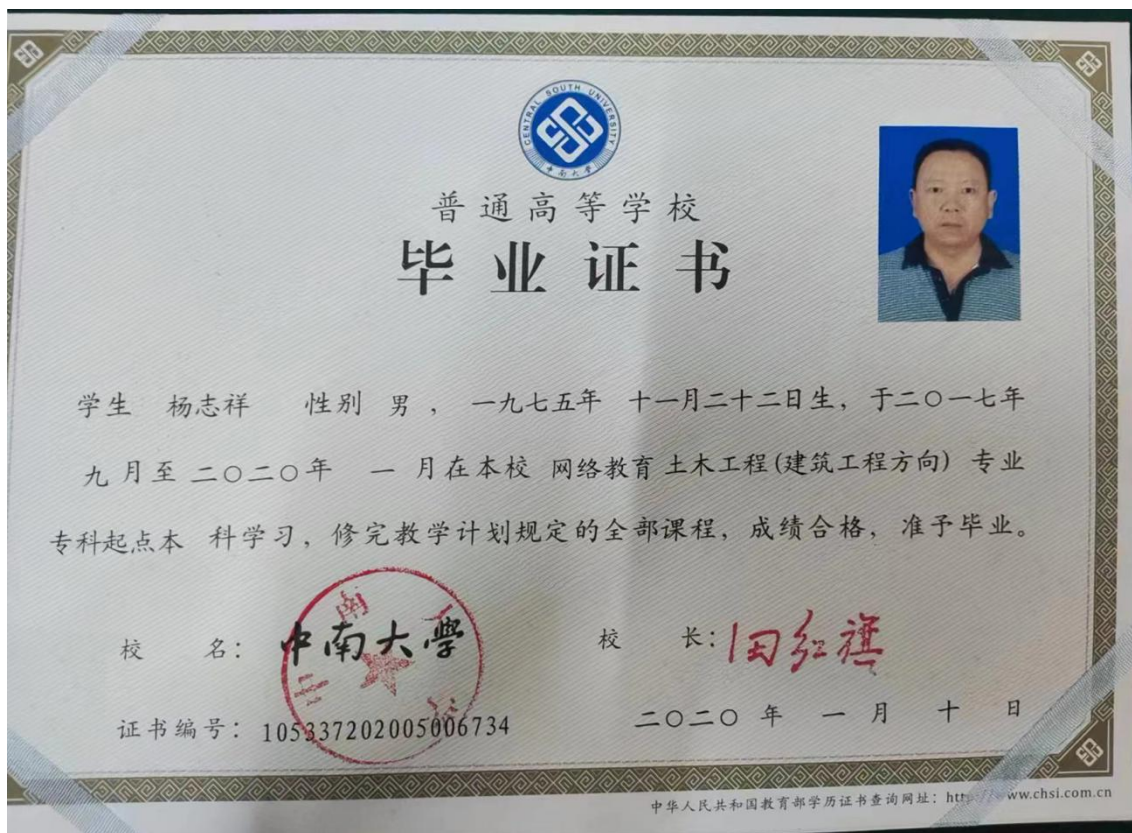 CENTRAL SOUTH UNIVERSITY
中南大学
普通高等学校
毕业证书
学生 杨志祥 性别 男 , 一九七五年 十一月二十二日生, 于二〇一七年
九 月至 二〇二〇年 一 月在本校 网络教育 土木工程(建筑工程方向) 专业
专科起点本 科学习, 修完教学计划规定的全部课程, 成绩合格, 准予毕业。
校 名: 中南大學
校 长: 田红旗
证书编号: 105337202005006734
二〇二〇 年 一 月 十 日
中华人民共和国教育部学历证书查询网址: http://www.chsi.com.cn